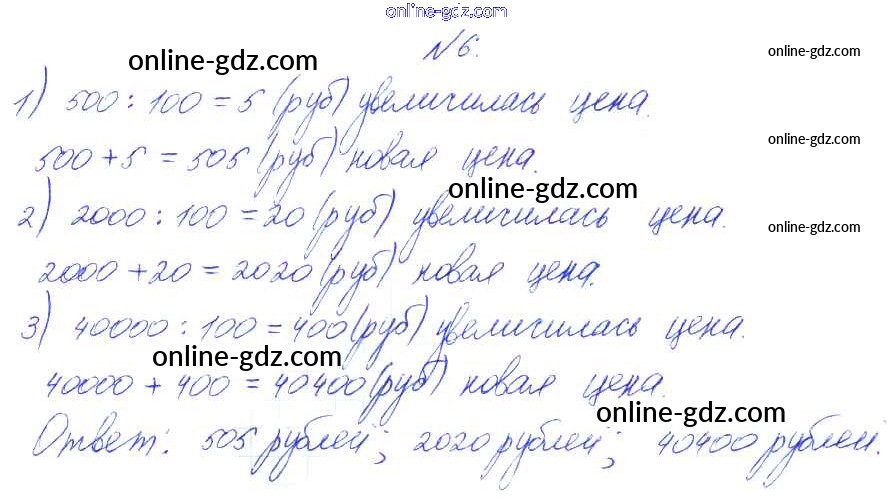 online-gdz.com
№6.
online-gdz.com
online-gdz.com
1) 500 : 100 = 5 (руб) увеличилась цена.
500 + 5 = 505 (руб) новая цена.
online-gdz.com
online-gdz.com
2) 2000 : 100 = 20 (руб) увеличилась цена.
online-gdz.com
2000 + 20 = 2020 (руб) новая цена.
3) 40000 : 100 = 400 (руб) увеличилась цена.
online-gdz.com
40000 + 400 = 40400 (руб) новая цена.
online-gdz.com
Ответ: 505 рублей; 2020 рублей; 40400 рублей.